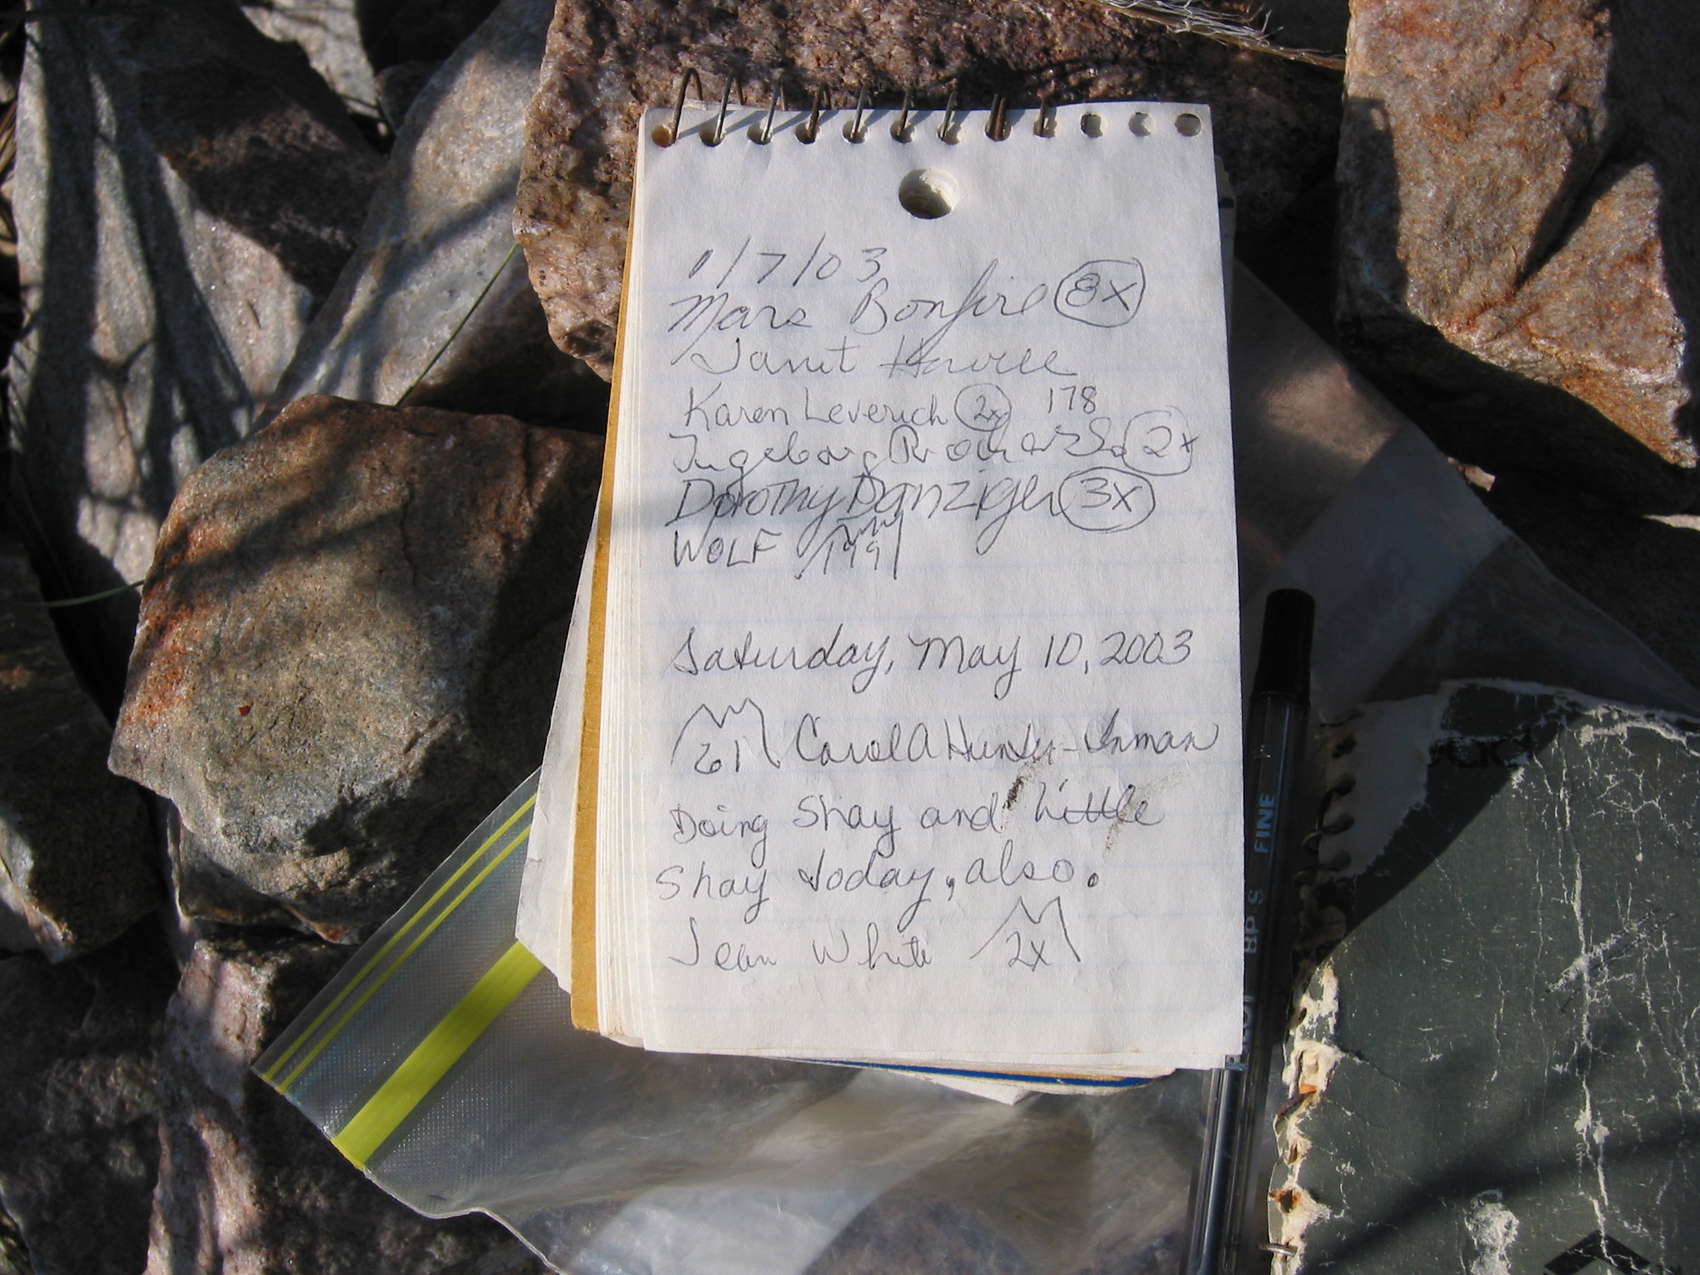 1/7/03
Mars Bonfire 8x
Janet Howell
Karen Leverich 2x 178
Ingeborg 2x
Dorothy Danziger 3x
WOLF 1991
Saturday, May 10, 2003
61 Carol A Hunter-Inman
Doing Shay and Little
Shay today, also.
Jean White 2x
BP S FINE